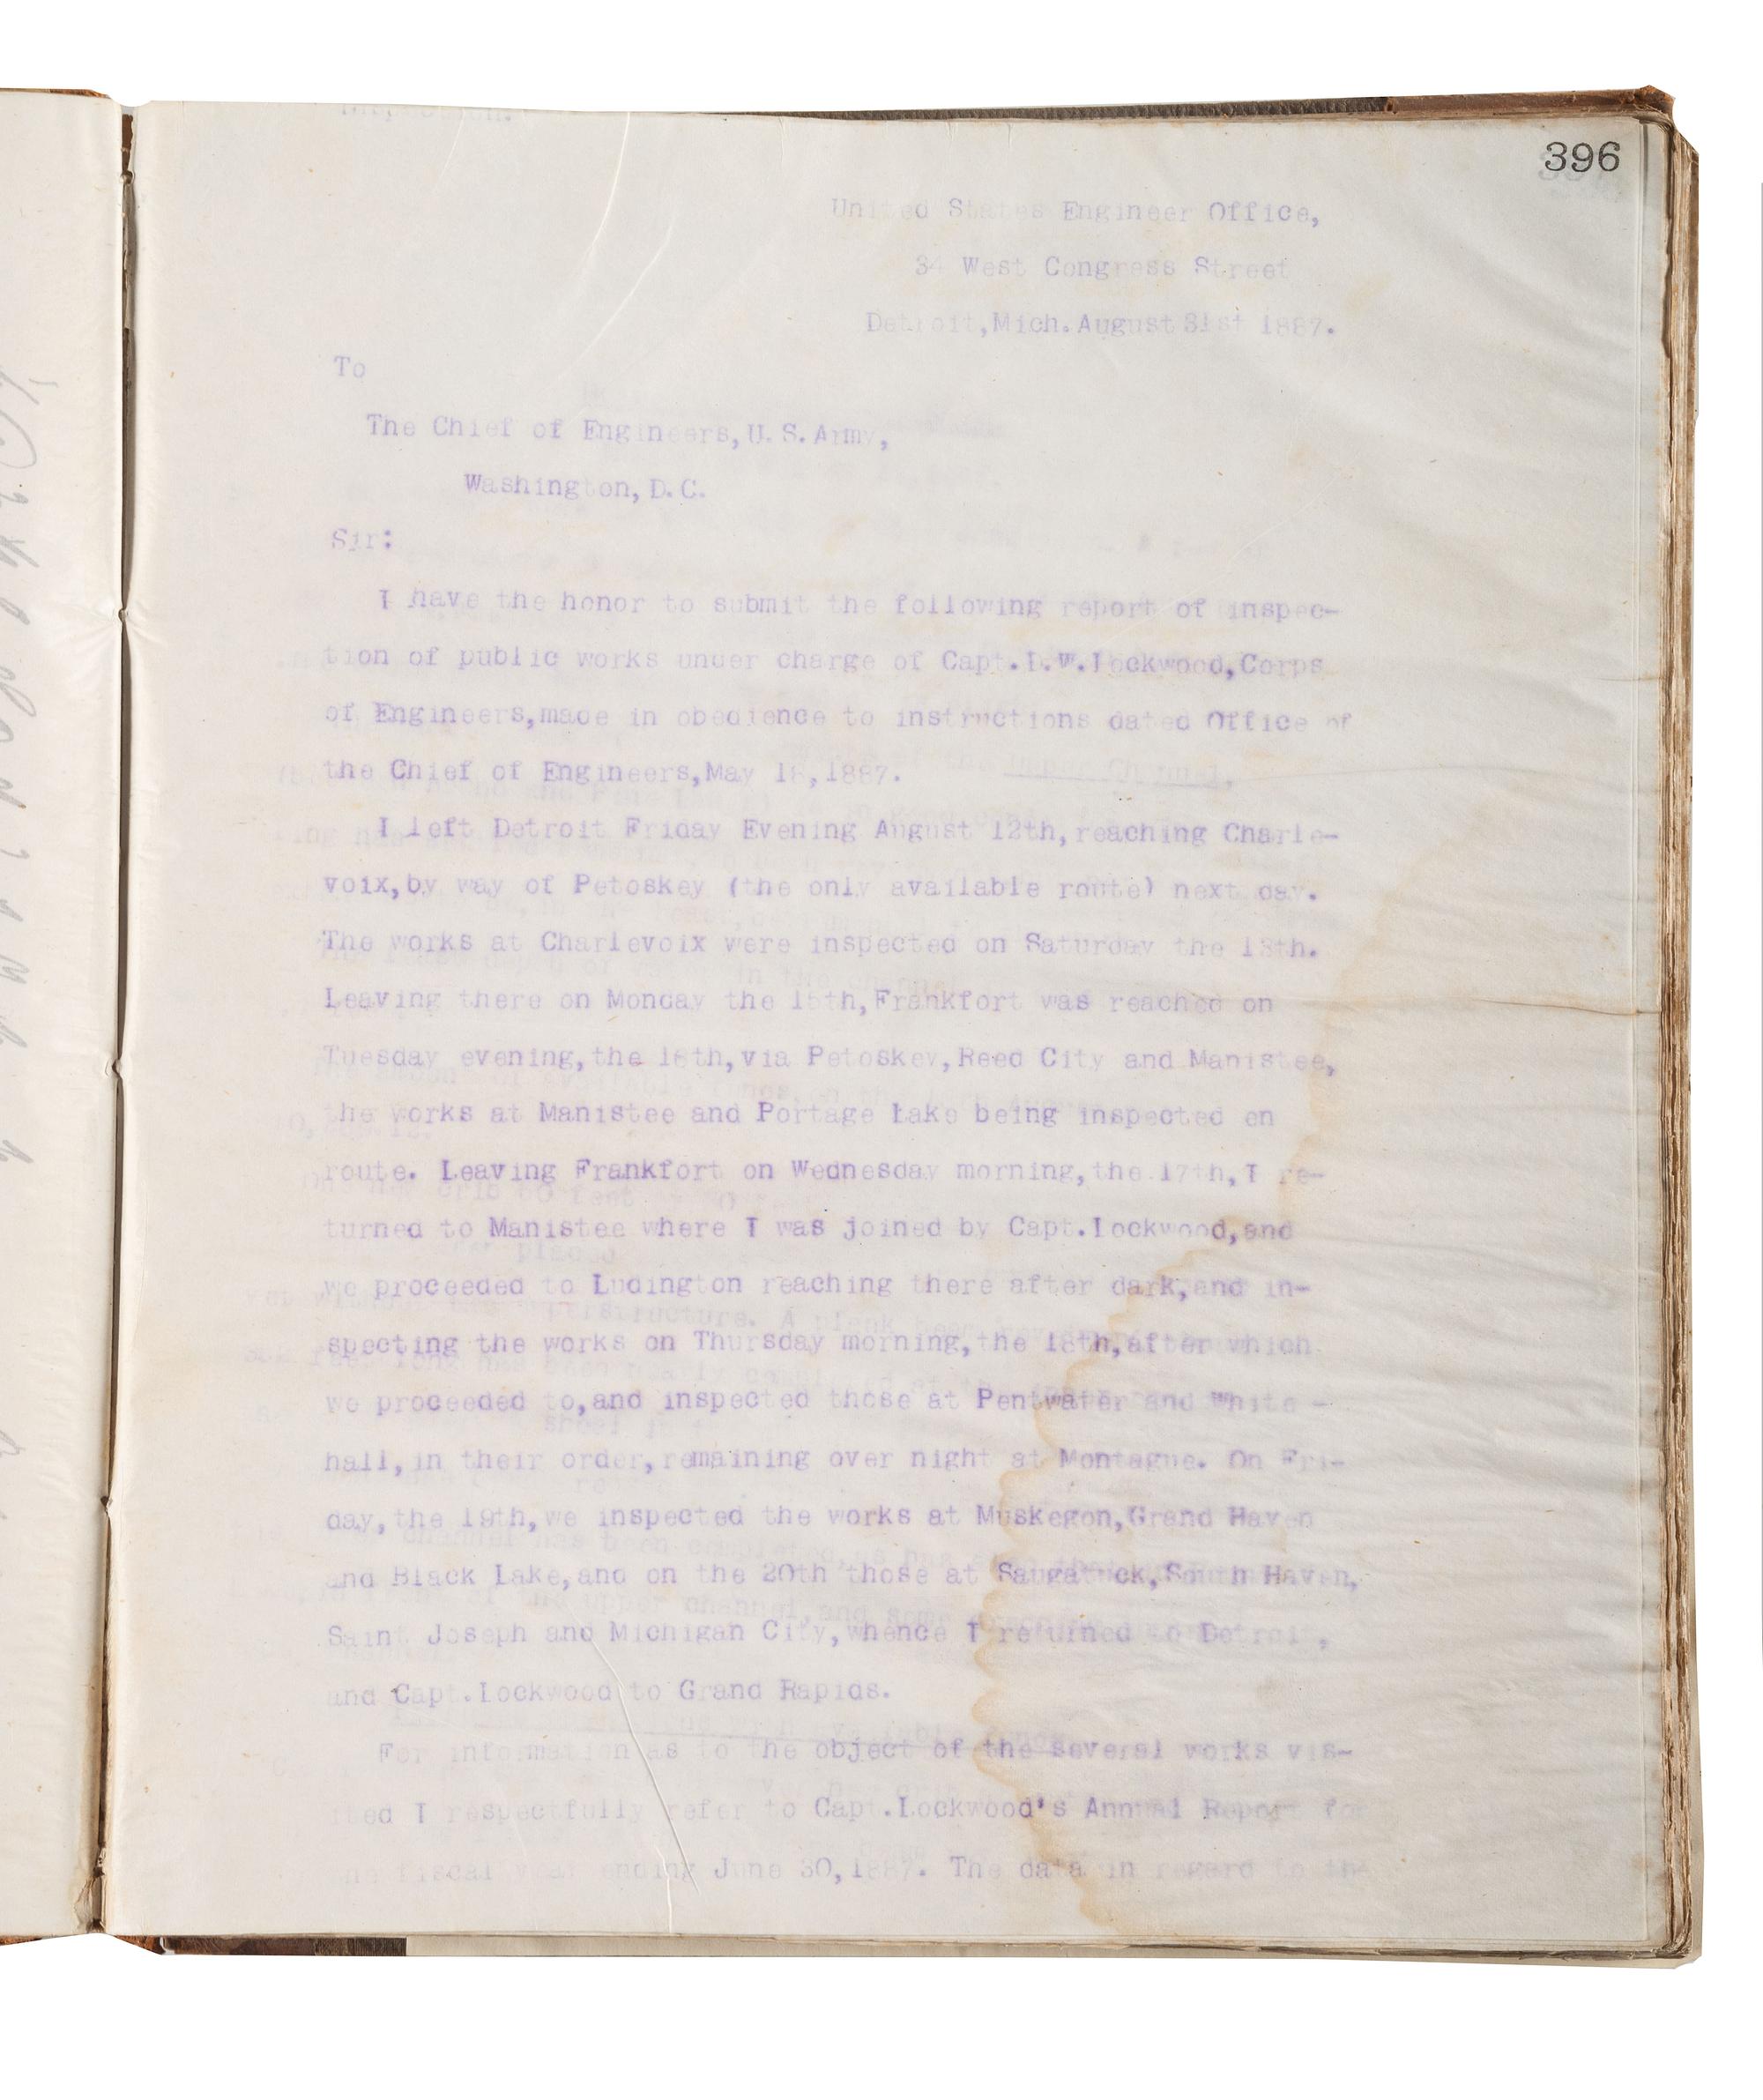 396
United States Engineer Office,
34 West Congress Street
Detroit,Mich.August 31st 1887.
To
The Chief of Engineers,U.S.Army,
Washington,D.C.
Sir:
I have the honor to submit the following report of inspec-
tion of public works under charge of Capt.D.W.Lockwood,Corps
of Engineers,made in obedience to instructions dated Office of
the Chief of Engineers,May 18,1887.
I left Detroit Friday Evening August 12th,reaching Charle-
voix,by way of Petoskey (the only available route) next day.
The works at Charlevoix were inspected on Saturday the 13th.
Leaving there on Monday the 15th,Frankfort was reached on
Tuesday evening,the 16th,via Petoskey,Reed City and Manistee,
the works at Manistee and Portage Lake being inspected en
route. Leaving Frankfort on Wednesday morning,the 17th,I re-
turned to Manistee where I was joined by Capt.Lockwood,and
we proceeded to Ludington reaching there after dark,and in-
specting the works on Thursday morning,the 18th,after which
we proceeded to,and inspected those at Pentwater and White -
hall,in their order,remaining over night at Montague. On Fri-
day,the 19th,we inspected the works at Muskegon,Grand Haven
and Black Lake,and on the 20th those at Saugatuck,South Haven,
Saint Joseph and Michigan City,whence I returned to Detroit,
and Capt.Lockwood to Grand Rapids.
For information as to the object of the several works vis-
ited I respectfully refer to Capt.Lockwood's Annual Report for
the fiscal year ending June 30,1887. The data in regard to the